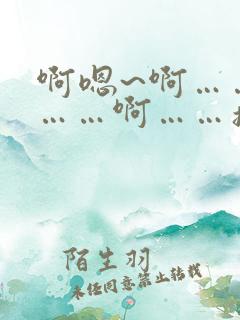 啊嗯~啊……
……啊……
陌生羽
未经同意禁止转载